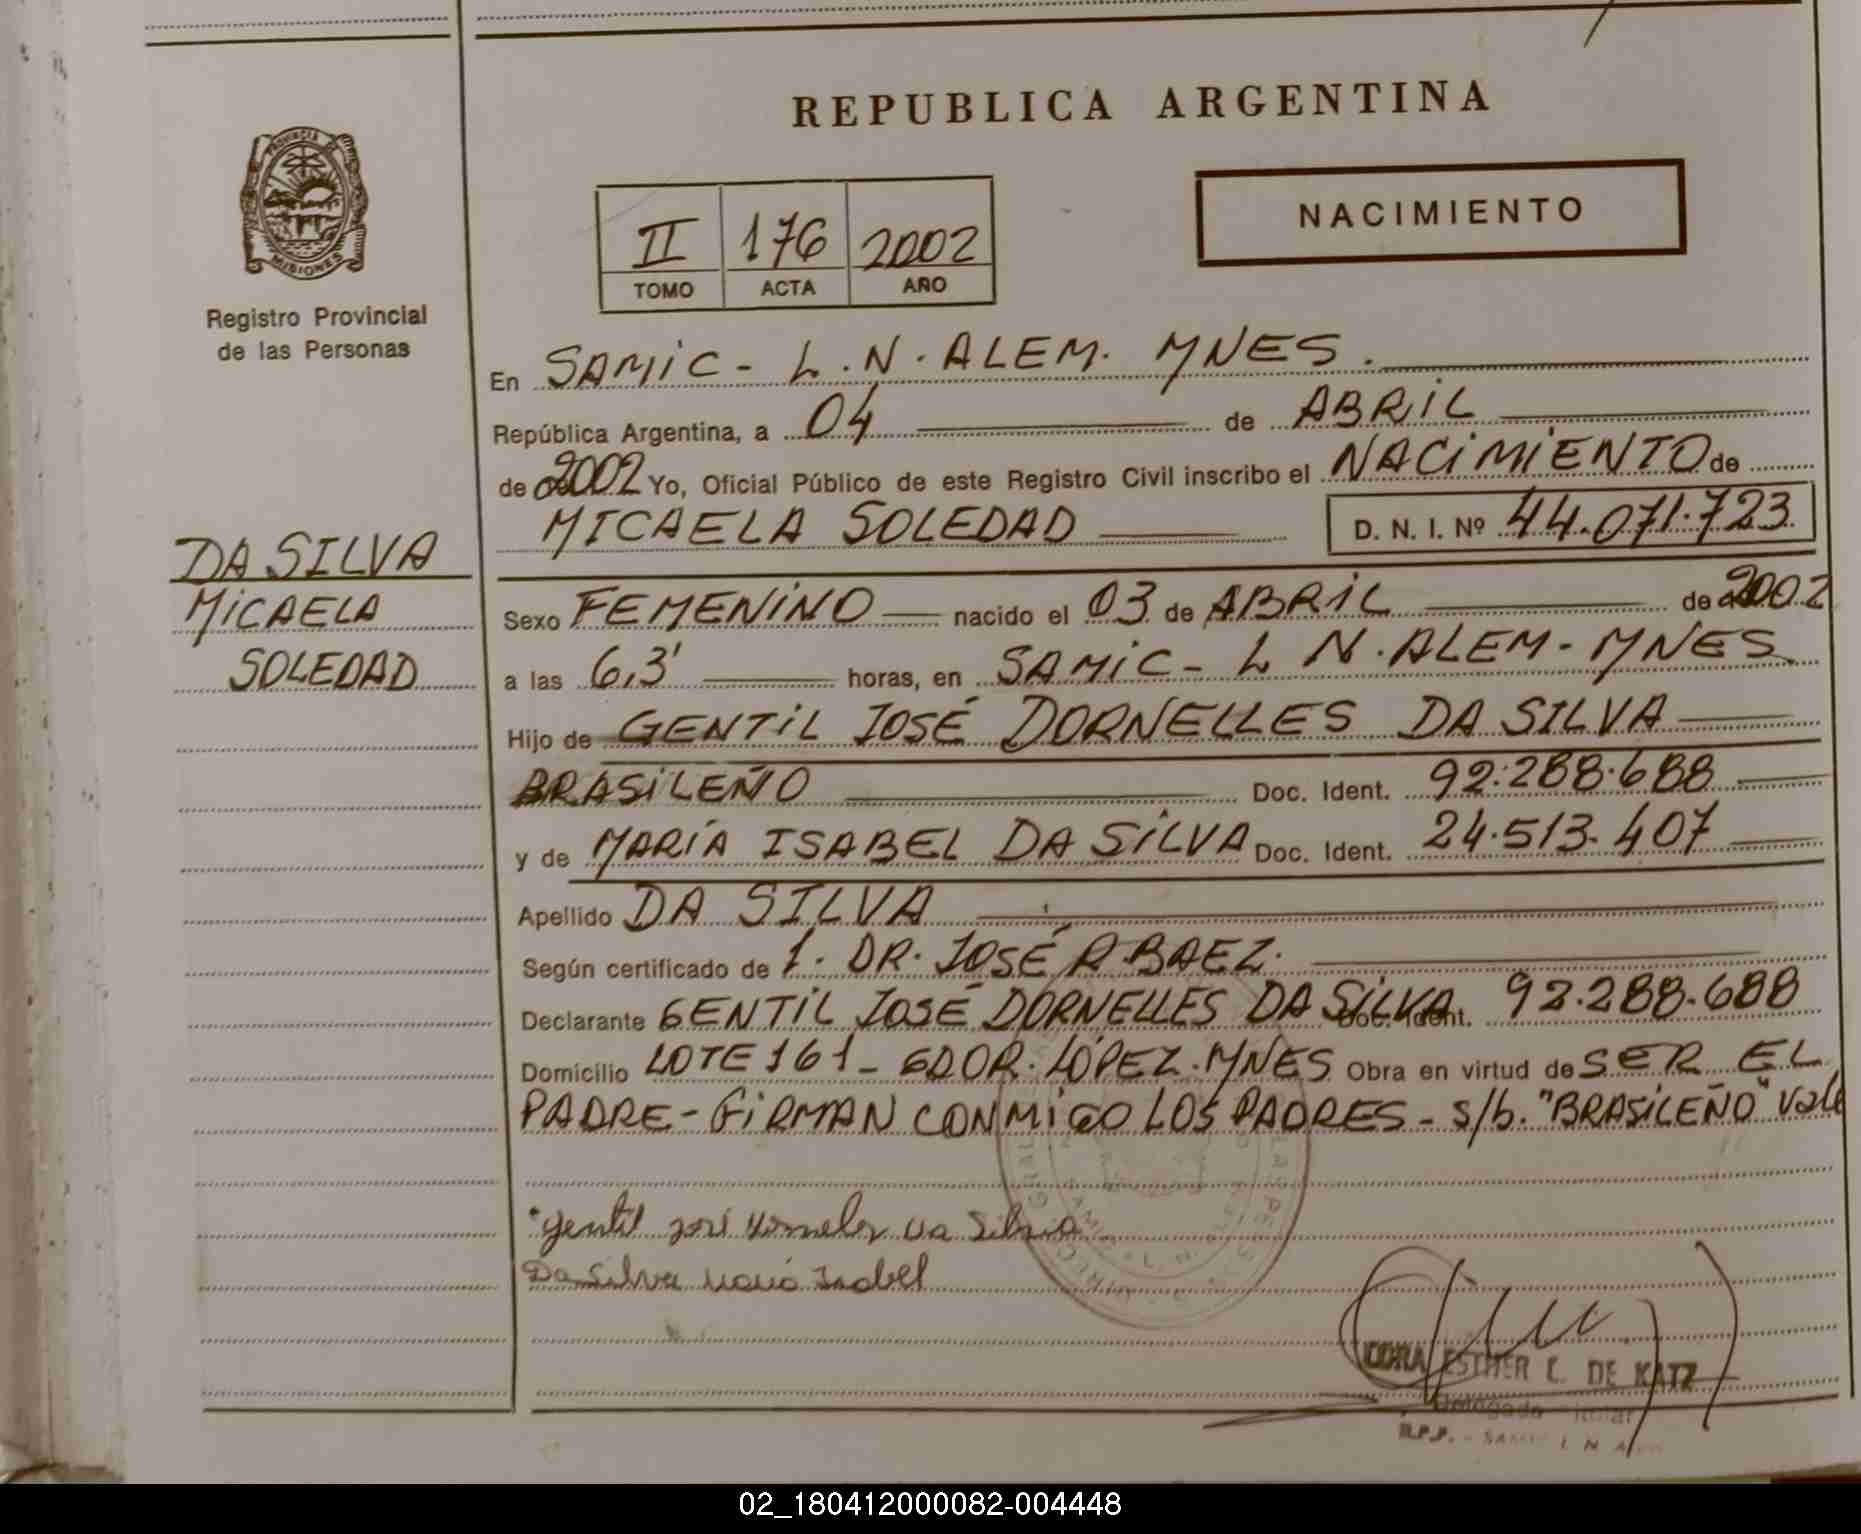 REPUBLICA ARGENTINA
PROVINCIA DE
MISIONES
Registro Provincial
de las Personas
II 176 2002
TOMO ACTA AÑO
NACIMIENTO
En SAMIC - L.N. ALEM. MNES.
República Argentina, a 04 de ABRIL
de 2002 Yo, Oficial Público de este Registro Civil inscribo el NACIMIENTO de
MICAELA SOLEDAD D. N. I. Nº 44.071.723
DA SILVA
MICAELA
SOLEDAD
Sexo FEMENINO nacido el 03 de ABRIL de 2002
a las 6,3' horas, en SAMIC - L N. ALEM - MNES
Hijo de GENTIL JOSÉ DORNELLES DA SILVA
BRASILEÑO Doc. Ident. 92.288.688
y de MARÍA ISABEL DA SILVA Doc. Ident. 24.513.407
Apellido DA SILVA
Según certificado de 1. DR. JOSÉ R. BAEZ.
Declarante GENTIL JOSÉ DORNELLES DA SILVA Doc. Ident. 92.288.688
Domicilio LOTE 161 - GDOR. LÓPEZ. MNES Obra en virtud de SER EL
PADRE - FIRMAN CONMIGO LOS PADRES - s/b. "BRASILEÑO" Vale
Gentil José Dornelles Da Silva
Da Silva María Isabel
ESTHER L. DE KATZ
Delegado Titular
R.P.P. - SAMIC L N
02_180412000082-004448